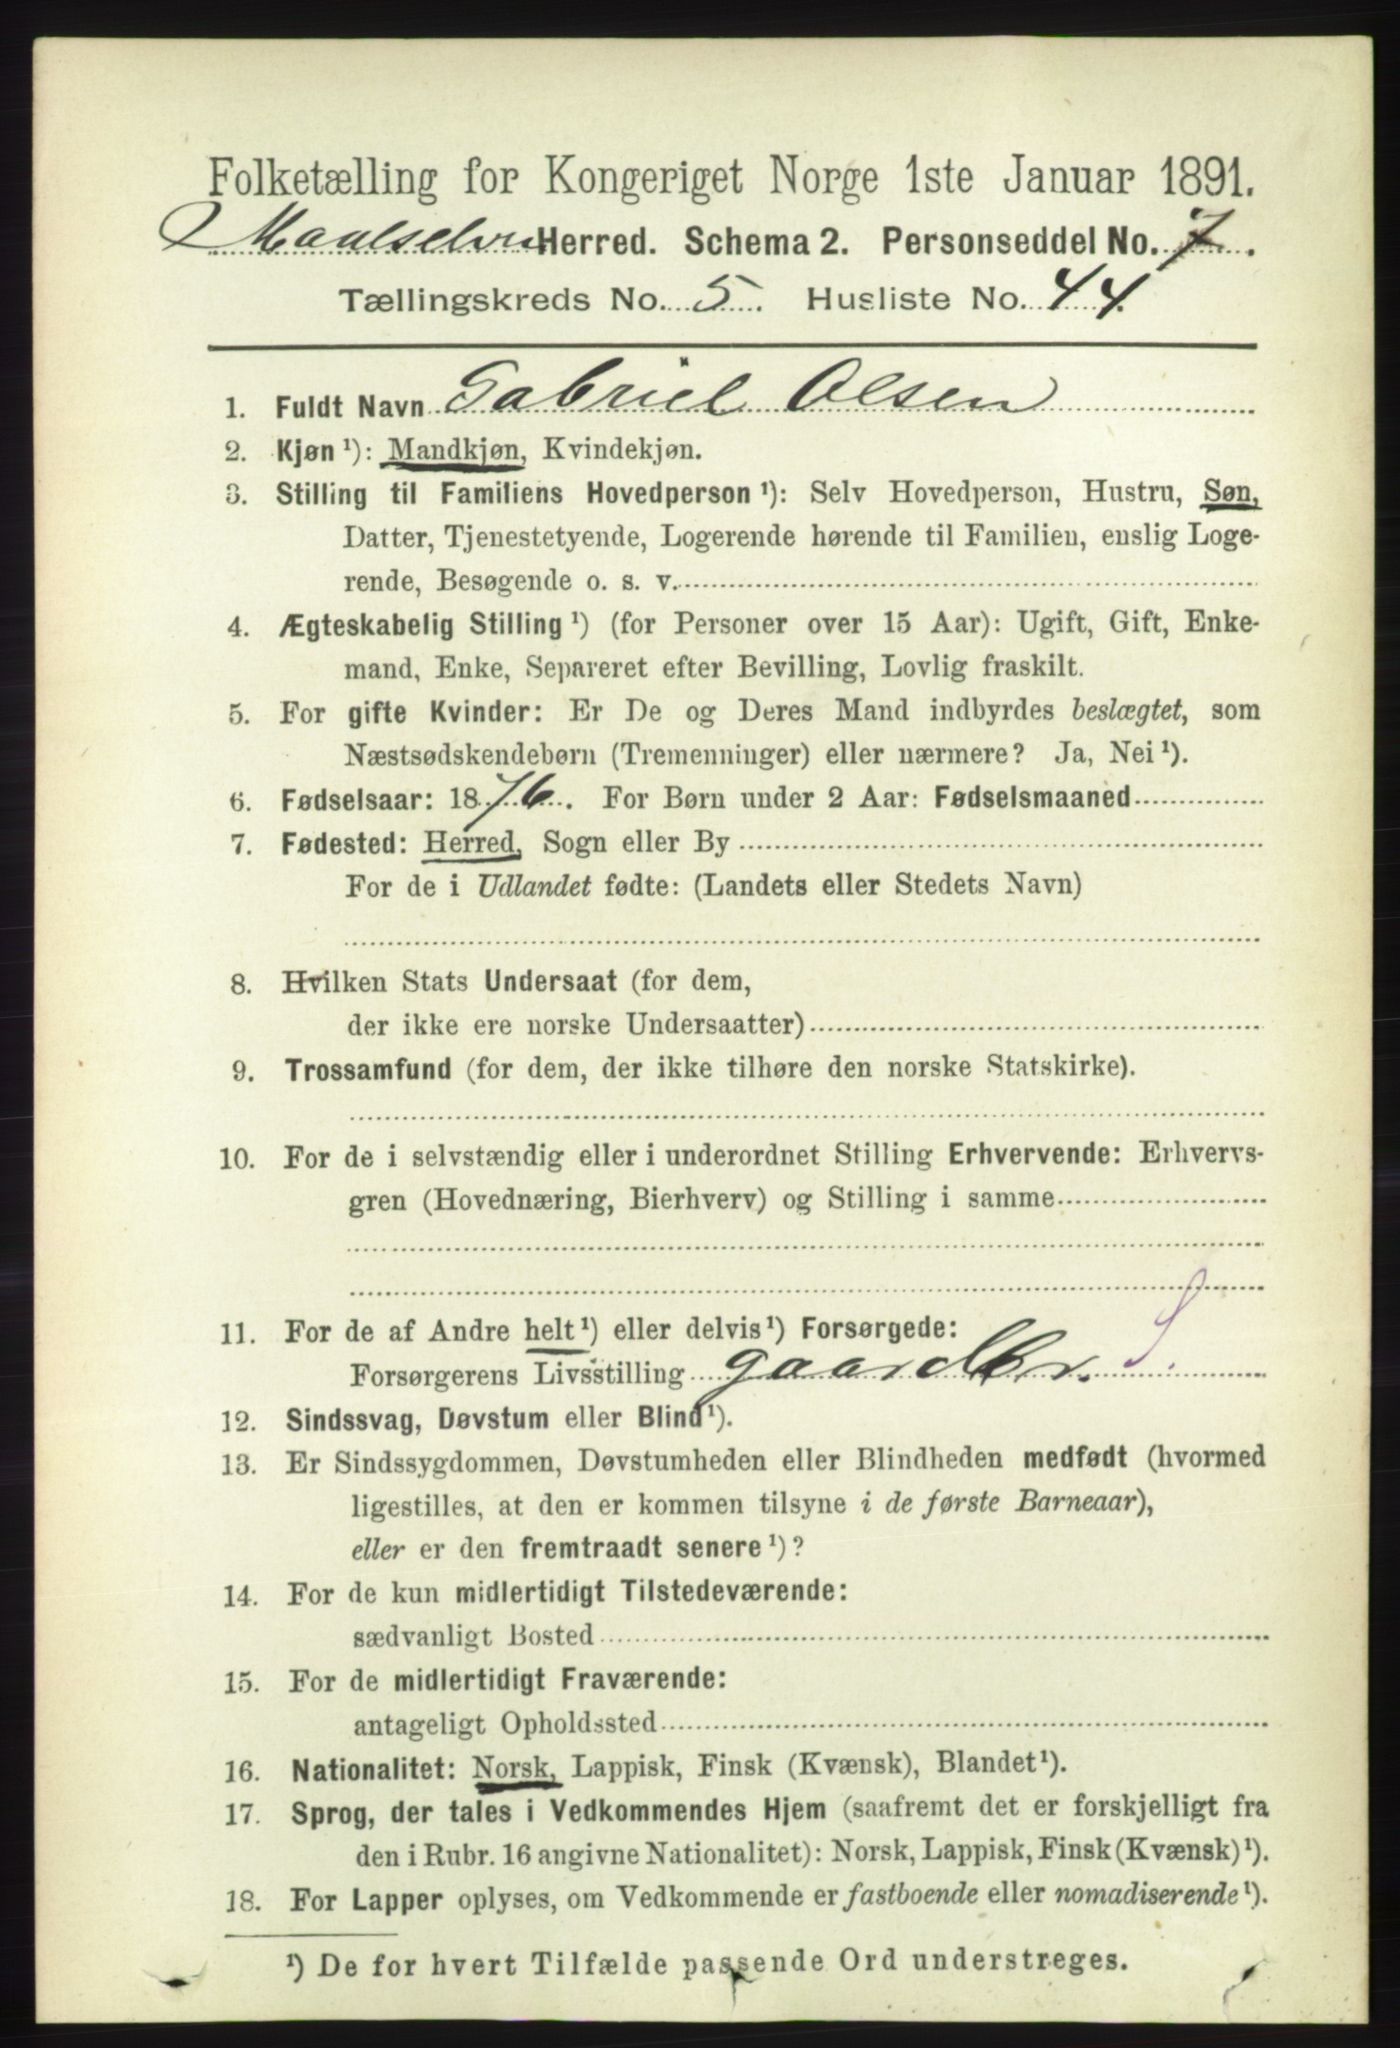 Folketælling for Kongeriget Norge 1ste Januar 1891.
Maalselven Herred. Schema 2. Personseddel No. 7.
Tællingskreds No. 5. Husliste No. 44.
1. Fuldt Navn Gabriel Olsen
2. Kjøn ¹): Mandkjøn, Kvindekjøn.
3. Stilling til Familiens Hovedperson ¹): Selv Hovedperson, Hustru, Søn,
Datter, Tjenestetyende, Logerende hørende til Familien, enslig Loge-
rende, Besøgende o. s. v.
4. Ægteskabelig Stilling ¹) (for Personer over 15 Aar): Ugift, Gift, Enke-
mand, Enke, Separeret efter Bevilling, Lovlig fraskilt.
5. For gifte Kvinder: Er De og Deres Mand indbyrdes beslægtet, som
Næstsødskendebørn (Tremenninger) eller nærmere? Ja, Nei ¹).
6. Fødselsaar: 1876. For Børn under 2 Aar: Fødselsmaaned
7. Fødested: Herred, Sogn eller By
For de i Udlandet fødte: (Landets eller Stedets Navn)
8. Hvilken Stats Undersaat (for dem,
der ikke ere norske Undersaatter)
9. Trossamfund (for dem, der ikke tilhøre den norske Statskirke).
10. For de i selvstændig eller i underordnet Stilling Erhvervende: Erhvervs-
gren (Hovednæring, Bierhverv) og Stilling i samme
11. For de af Andre helt ¹) eller delvis ¹) Forsørgede:
Forsørgerens Livsstilling gaardbr. S
12. Sindssvag, Døvstum eller Blind ¹).
13. Er Sindssygdommen, Døvstumheden eller Blindheden medfødt (hvormed
ligestilles, at den er kommen tilsyne i de første Barneaar),
eller er den fremtraadt senere ¹)?
14. For de kun midlertidigt Tilstedeværende:
sædvanligt Bosted
15. For de midlertidigt Fraværende:
antageligt Opholdssted
16. Nationalitet: Norsk, Lappisk, Finsk (Kvænsk), Blandet ¹).
17. Sprog, der tales i Vedkommendes Hjem (saafremt det er forskjelligt fra
den i Rubr. 16 angivne Nationalitet): Norsk, Lappisk, Finsk (Kvænsk) ¹).
18. For Lapper oplyses, om Vedkommende er fastboende eller nomadiserende ¹).
¹) De for hvert Tilfælde passende Ord understreges.